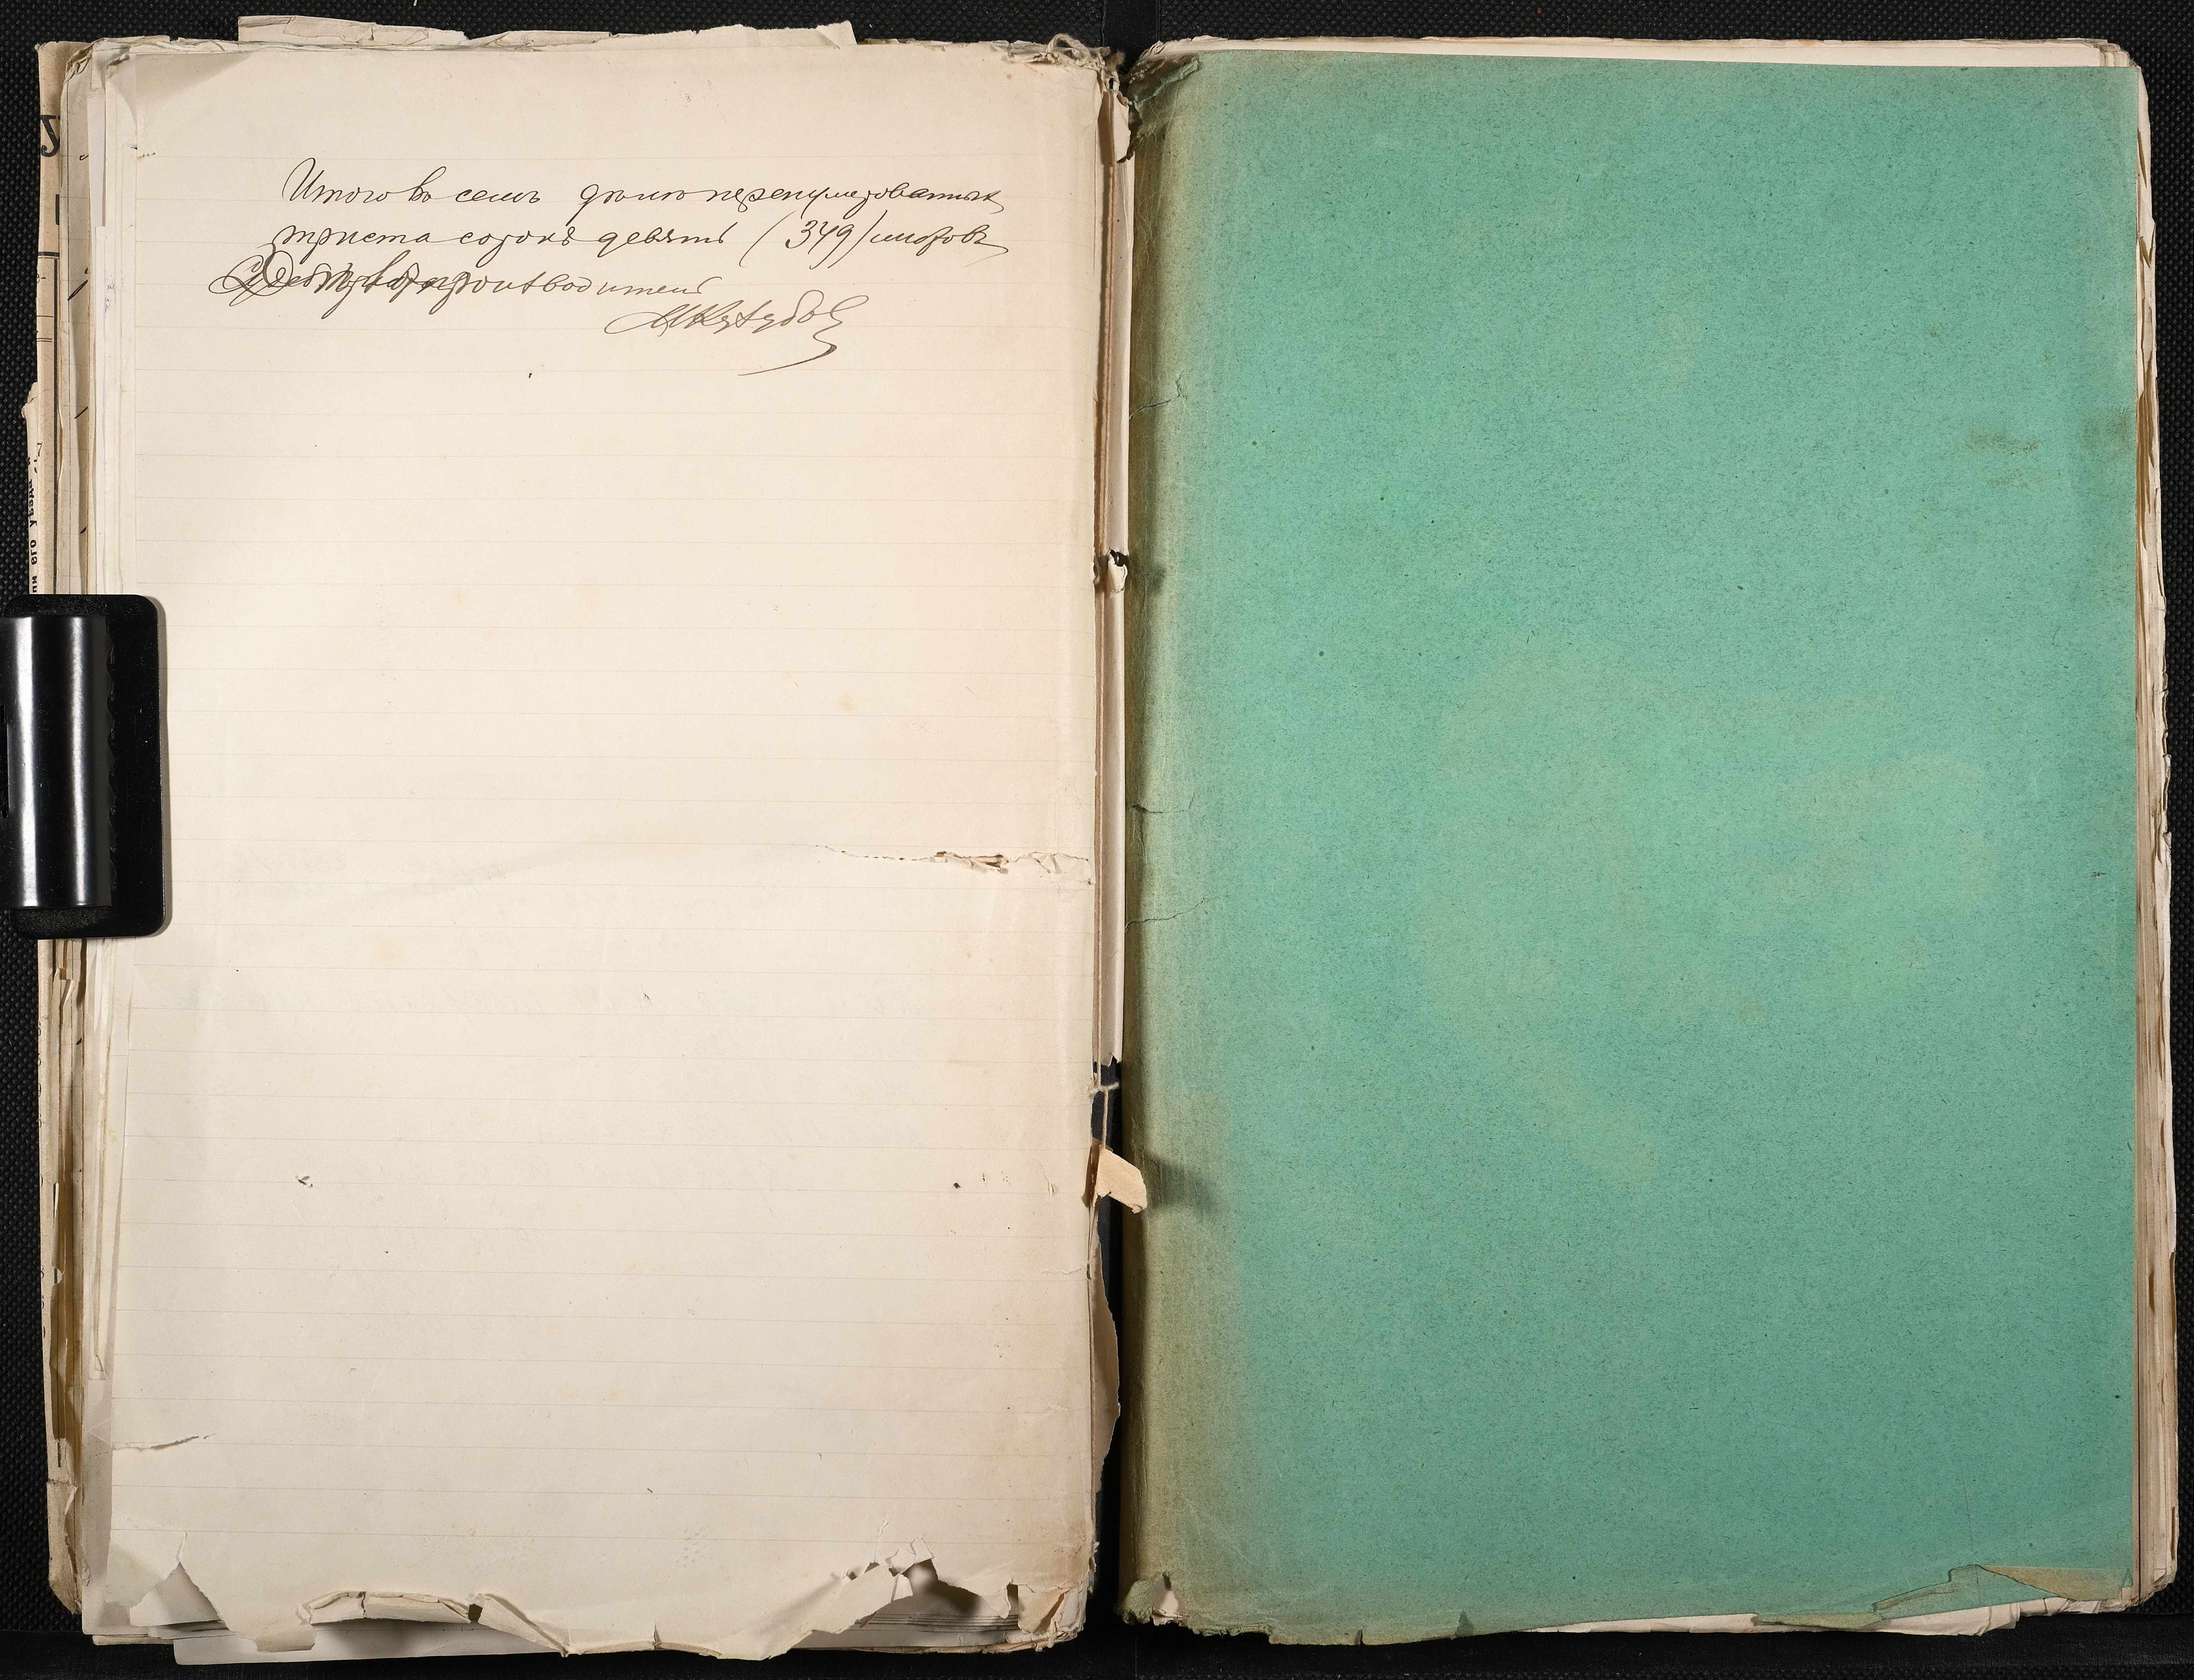 Итого въ семъ дѣлѣ перенумерованныхъ
триста сорокъ девять (349) листовъ
Дѣлопроизводитель